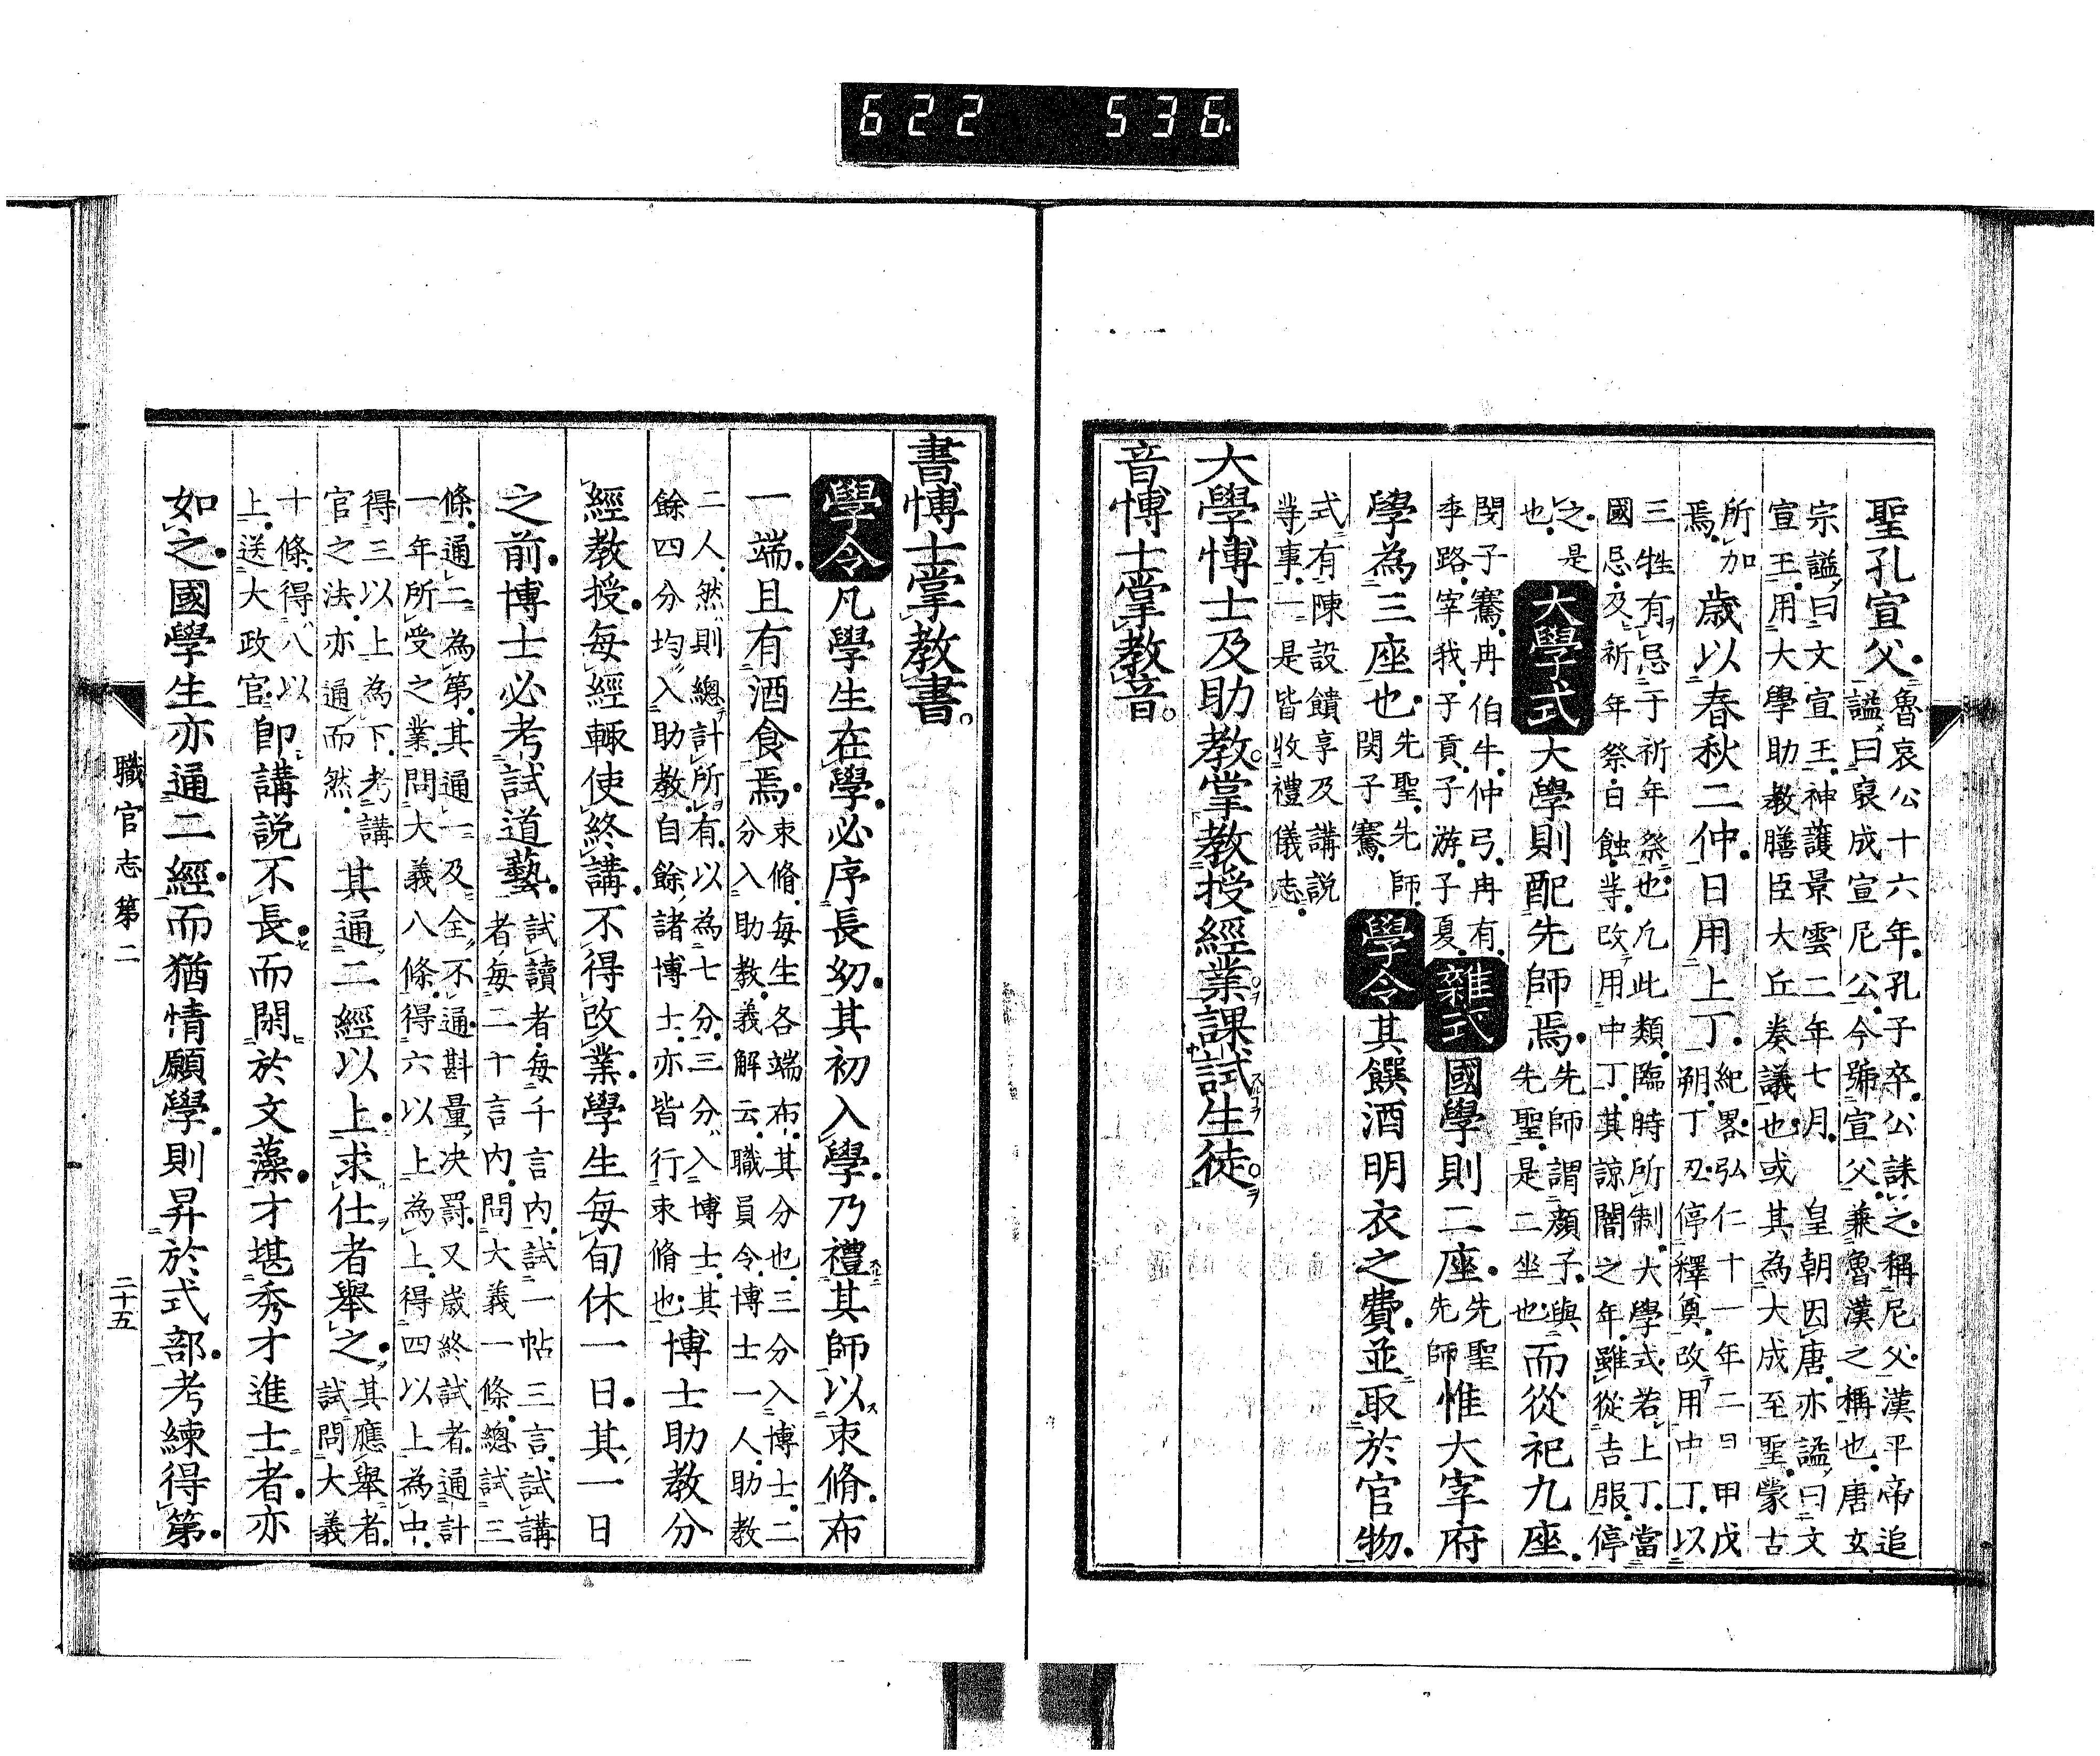 622 536
聖孔宣父魯哀公十六年孔子卒公誄之稱尼父漢平帝追
謚曰襃成宣尼公今號宣父兼魯漢之稱也唐玄
宗謚曰文宣王神護景雲二年七月皇朝因唐亦謚曰文
宣王用大學助教膳臣大丘奏議也或其為大成至聖蒙古
所加
焉歲以春秋二仲日用上丁紀畧弘仁十一年二日甲戊
朔丁丑停釋奠改用中丁以
三牲有忌于祈年祭也凡此類臨時所制大學式若上丁當
國忌及祈年祭日蝕䓁改用中丁其諒闇之年雖從吉服停
之是
也大學式大學則配先師焉先師謂顏子與
先聖是二坐也而從祀九座
閔子騫冉伯牛仲弓冉有
季路宰我子貢子游子夏雜式國學則二座先聖
先師惟大宰府
學為三座也先聖先師
閔子騫學令其饌酒明衣之費並取於官物
式有陳設饋享及講説
䓁事一是皆收禮儀志
大學博士及助教掌教授經業課試生徒
音博士掌教音
書博士掌教書
學令凡學生在學必序長幼其初入學乃禮其師以束脩布
一端且有酒食焉束脩每生各端布其分也三分入博士二
分入助教義解云職員令博士一人助教
二人然則總計所有以為七分三分入博士其
餘四分均入助教自餘諸博士亦皆行束脩也博士助教分
經教授每經輙使終講不得改業學生每旬休一日其一日
之前博士必考試道藝試讀者每千言内試一帖三言試講
者每二十言内問大義一條總試三
條通二為第其通一及全不通斟量決罰又歲終試者通計
一年所受之業問大義八條得六以上為上得四以上為中
得三以上為下考講
官之法亦通而然其通二經以上求仕者舉之其應舉者
試問大義
十條得八以
上送大政官卽講説不長而閑於文藻才堪秀才進士者亦
如之國學生亦通二經而猶情願學則昇於式部考練得第
職官志第二
二十五